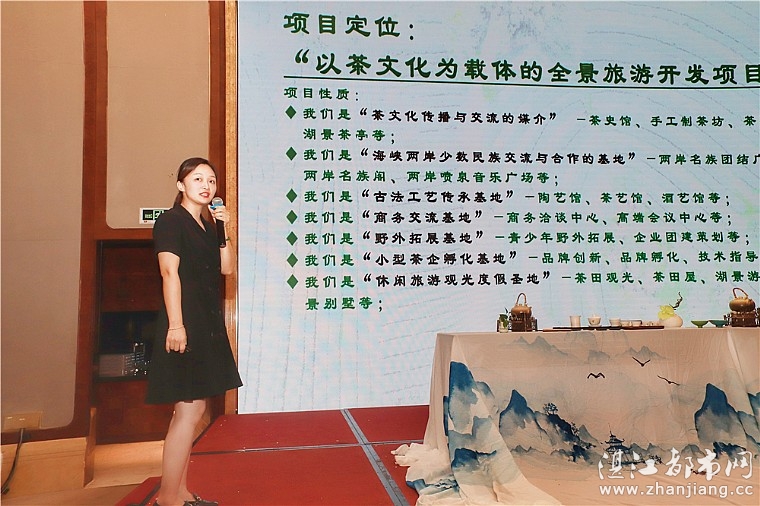 项目定位：
“以茶文化为载体的全景旅游开发项目
项目性质：
◆我们是“茶文化传播与交流的媒介” —茶史馆、手工制茶坊、茶
湖景茶亭等；
◆我们是“海峡两岸少数民族交流与合作的基地”—两岸名族团结广
两岸名族阁、两岸喷泉音乐广场等；
◆我们是“古法工艺传承基地”—陶艺馆、茶艺馆、酒艺馆等；
◆我们是“商务交流基地”—商务洽谈中心、高端会议中心等；
◆我们是“野外拓展基地”—青少年野外拓展、企业团建策划等；
◆我们是“小型茶企孵化基地”—品牌创新、品牌孵化、技术指导
◆我们是“休闲旅游观光度假圣地”—茶田观光、茶田屋、湖景游
景别墅等；
湛江都市网
www.zhanjiang.cc